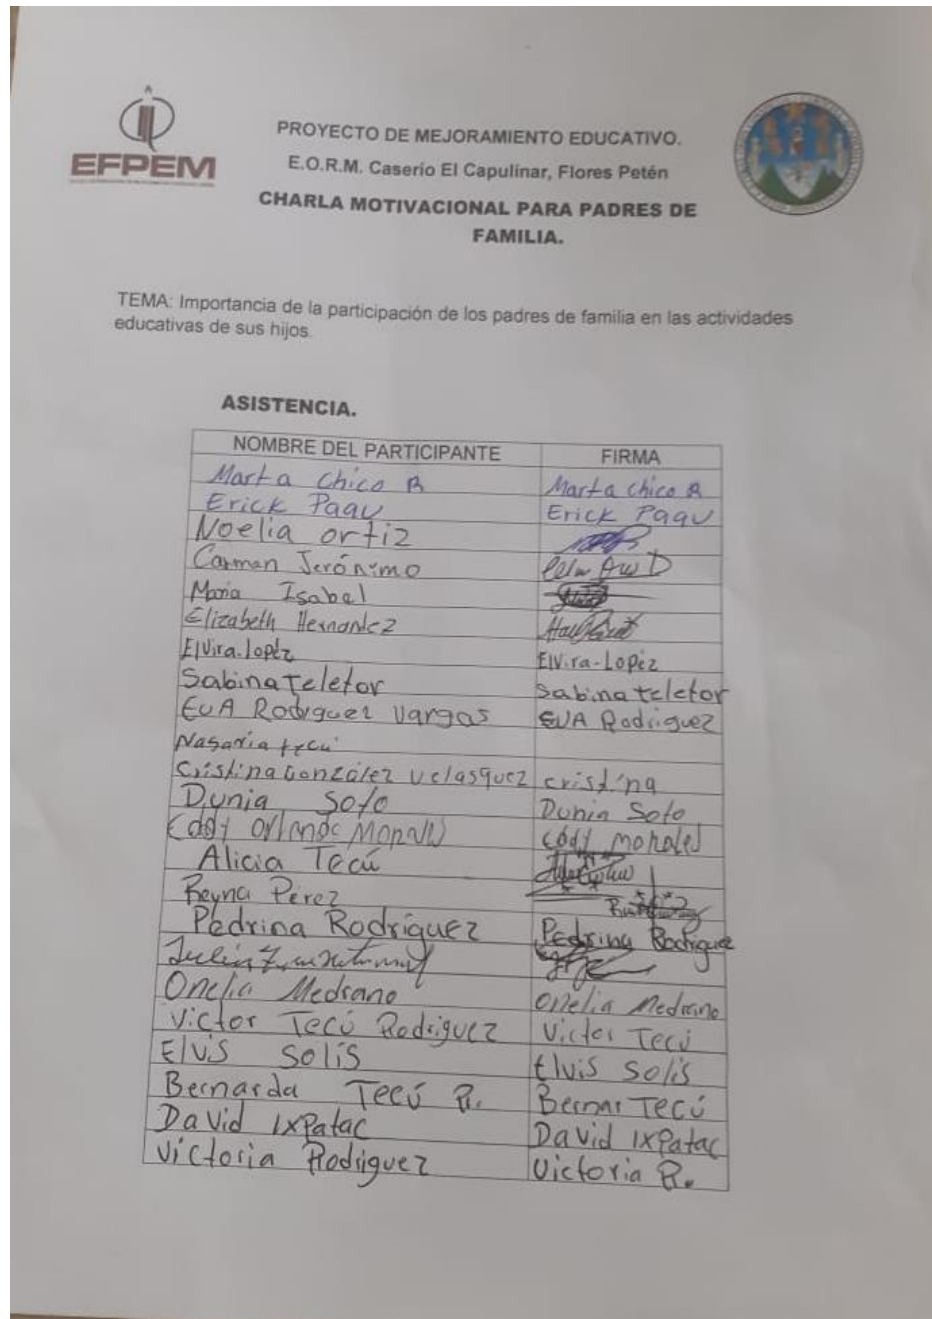 EFPEM
PROYECTO DE MEJORAMIENTO EDUCATIVO.
E.O.R.M. Caserío El Capulinar, Flores Petén
CHARLA MOTIVACIONAL PARA PADRES DE
FAMILIA.
TEMA: Importancia de la participación de los padres de familia en las actividades
educativas de sus hijos.
ASISTENCIA.
NOMBRE DEL PARTICIPANTE FIRMA
Marta Chico R Marta Chico R
Erick Paau Erick Paau
Noelia ortiz
Carmen Jerónimo
Maria Isabel
Elizabeth Hernandez
Elvira-Lopéz Elvira-Lopéz
Sabina teletor Sabina teletor
EVA Rodriguez Vargas EVA Rodriguez
Nasaria tecu
Cristina González Velasquez cristina
Dunia Soto Dunia Soto
Eddy Orlando Morales Eddy morales
Alicia Tecú
Reyna Perez
Pedrina Rodríguez Pedrina Rodriguez
Onelia Medrano Onelia Medrano
Victor Tecú Rodriguez Victor Tecú
Elvis Solís Elvis Solís
Bernarda Tecú R. Bernar Tecú
David Ixpatac David Ixpatac
Victoria Rodriguez Victoria R.